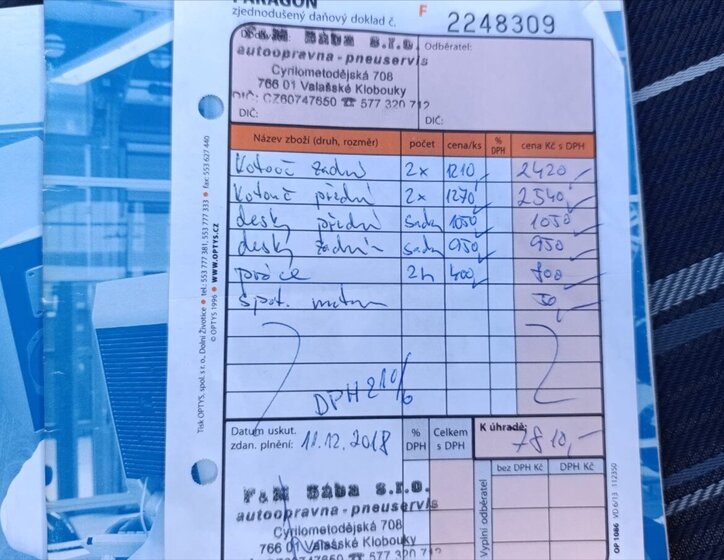 PARAGON
zjednodušený daňový doklad č. F 2248309
F&M Bába s.r.o. Odběratel:
autoopravna-pneuservis
Cyrilometodějská 708
766 01 Valašské Klobouky
DIČ: CZ60747650 ☎ 577 320 712
DIČ: DIČ:
Název zboží (druh, rozměr) počet cena/ks % DPH cena Kč s DPH
Kotouč zadní 2x 1210 2420,-
Kotouč přední 2x 1270 2540,-
desky přední sada 1050 1050,-
desky zadní sada 950 950,-
práce 2h 400 800,-
spot. 50,-
DPH 21%
Datum uskut. zdan. plnění: 11.12.2018 % DPH Celkem s DPH K úhradě: 7810,-
bez DPH Kč DPH Kč
F&M Bába s.r.o.
autoopravna-pneuservis
Cyrilometodějská 708
766 01 Valašské Klobouky
577 320 712
Vyplní odběratel
Tisk OPTYS, spol. s r. o., Dolní Životice • tel.: 553 777 381, 553 777 333 • fax: 553 627 440
© OPTYS 1996 • WWW.OPTYS.CZ
OP 1086 VD 6/13 112350